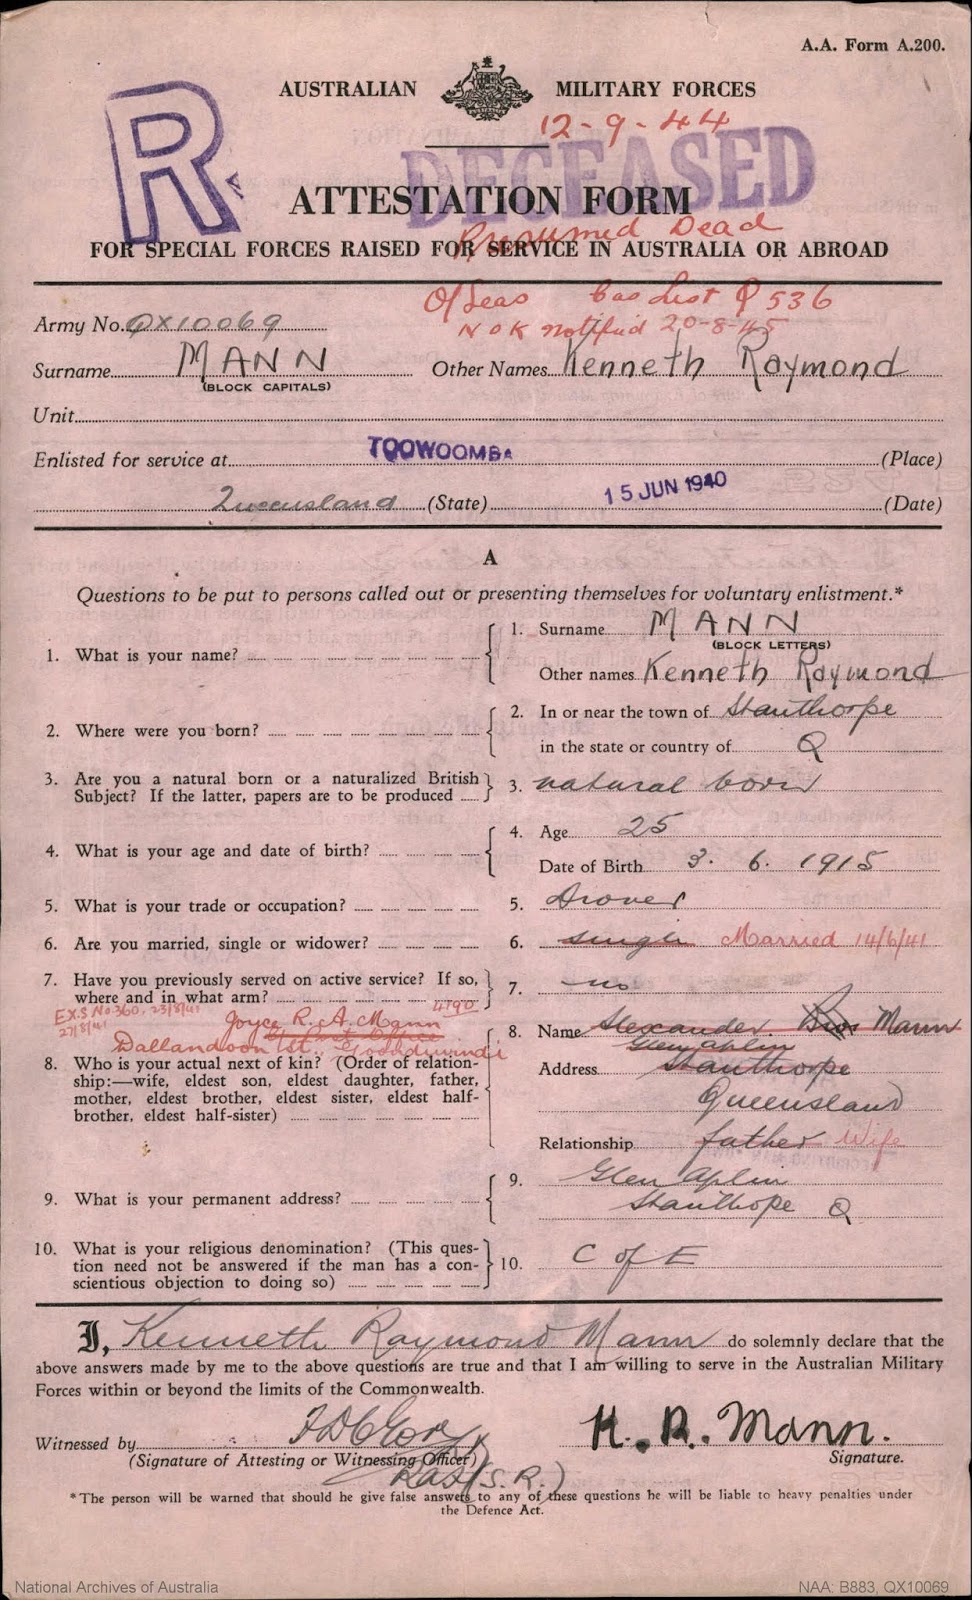 A.A. Form A.200.
R
AUSTRALIAN MILITARY FORCES
12-9-44
DECEASED
ATTESTATION FORM
Presumed Dead
FOR SPECIAL FORCES RAISED FOR SERVICE IN AUSTRALIA OR ABROAD
O/Seas Cas List Q 536
Army No. QX10069
NOK notified 20-8-45
Surname MANN Other Names Kenneth Raymond
(BLOCK CAPITALS)
Unit
Enlisted for service at TOOWOOMBA (Place)
Queensland (State) 15 JUN 1940 (Date)
A
Questions to be put to persons called out or presenting themselves for voluntary enlistment.*
1. What is your name? 1. Surname MANN
(BLOCK LETTERS)
Other names Kenneth Raymond
2. Where were you born? 2. In or near the town of Stanthorpe
in the state or country of Q
3. Are you a natural born or a naturalized British
Subject? If the latter, papers are to be produced 3. natural born
4. What is your age and date of birth? 4. Age 25
Date of Birth 3. 6. 1915
5. What is your trade or occupation? 5. Drover
6. Are you married, single or widower? 6. single Married 14/6/41
7. Have you previously served on active service? If so,
where and in what arm? 7. no
EXS No 360, 23/8/41 4190
27/8/41 Joyce R. A. Mann
Dallandoon St., Goondiwindi
8. Who is your actual next of kin? (Order of relation-
ship:—wife, eldest son, eldest daughter, father,
mother, eldest brother, eldest sister, eldest half-
brother, eldest half-sister)
8. Name Alexander Mann
Glen aplin
Address Stanthorpe
Queensland
Relationship father Wife
9. What is your permanent address? 9. Glen Aplin
Stanthorpe Q
10. What is your religious denomination? (This ques-
tion need not be answered if the man has a con-
scientious objection to doing so) 10. C of E
I, Kenneth Raymond Mann do solemnly declare that the
above answers made by me to the above questions are true and that I am willing to serve in the Australian Military
Forces within or beyond the limits of the Commonwealth.
Witnessed by K. R. Mann.
(Signature of Attesting or Witnessing Officer) Signature.
(S. R.)
*The person will be warned that should he give false answers to any of these questions he will be liable to heavy penalties under
the Defence Act.
National Archives of Australia NAA: B883, QX10069